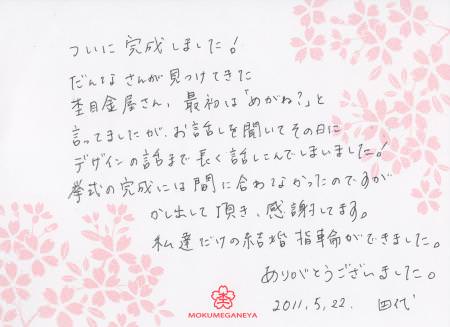 ついに完成しました!
だんなさんが見つけてきた
杢目金屋さん、最初は「めがね?」と
言ってましたが、お話しを聞いてその日に
デザインの話まで長く話しこんでしまいました!
挙式の完成には間に合わなかったのですが
かし出して頂き、感謝してます。
私達だけの結婚指輪ができました。
ありがとうございました。
2011.5.22.
MOKUMEGANEYA